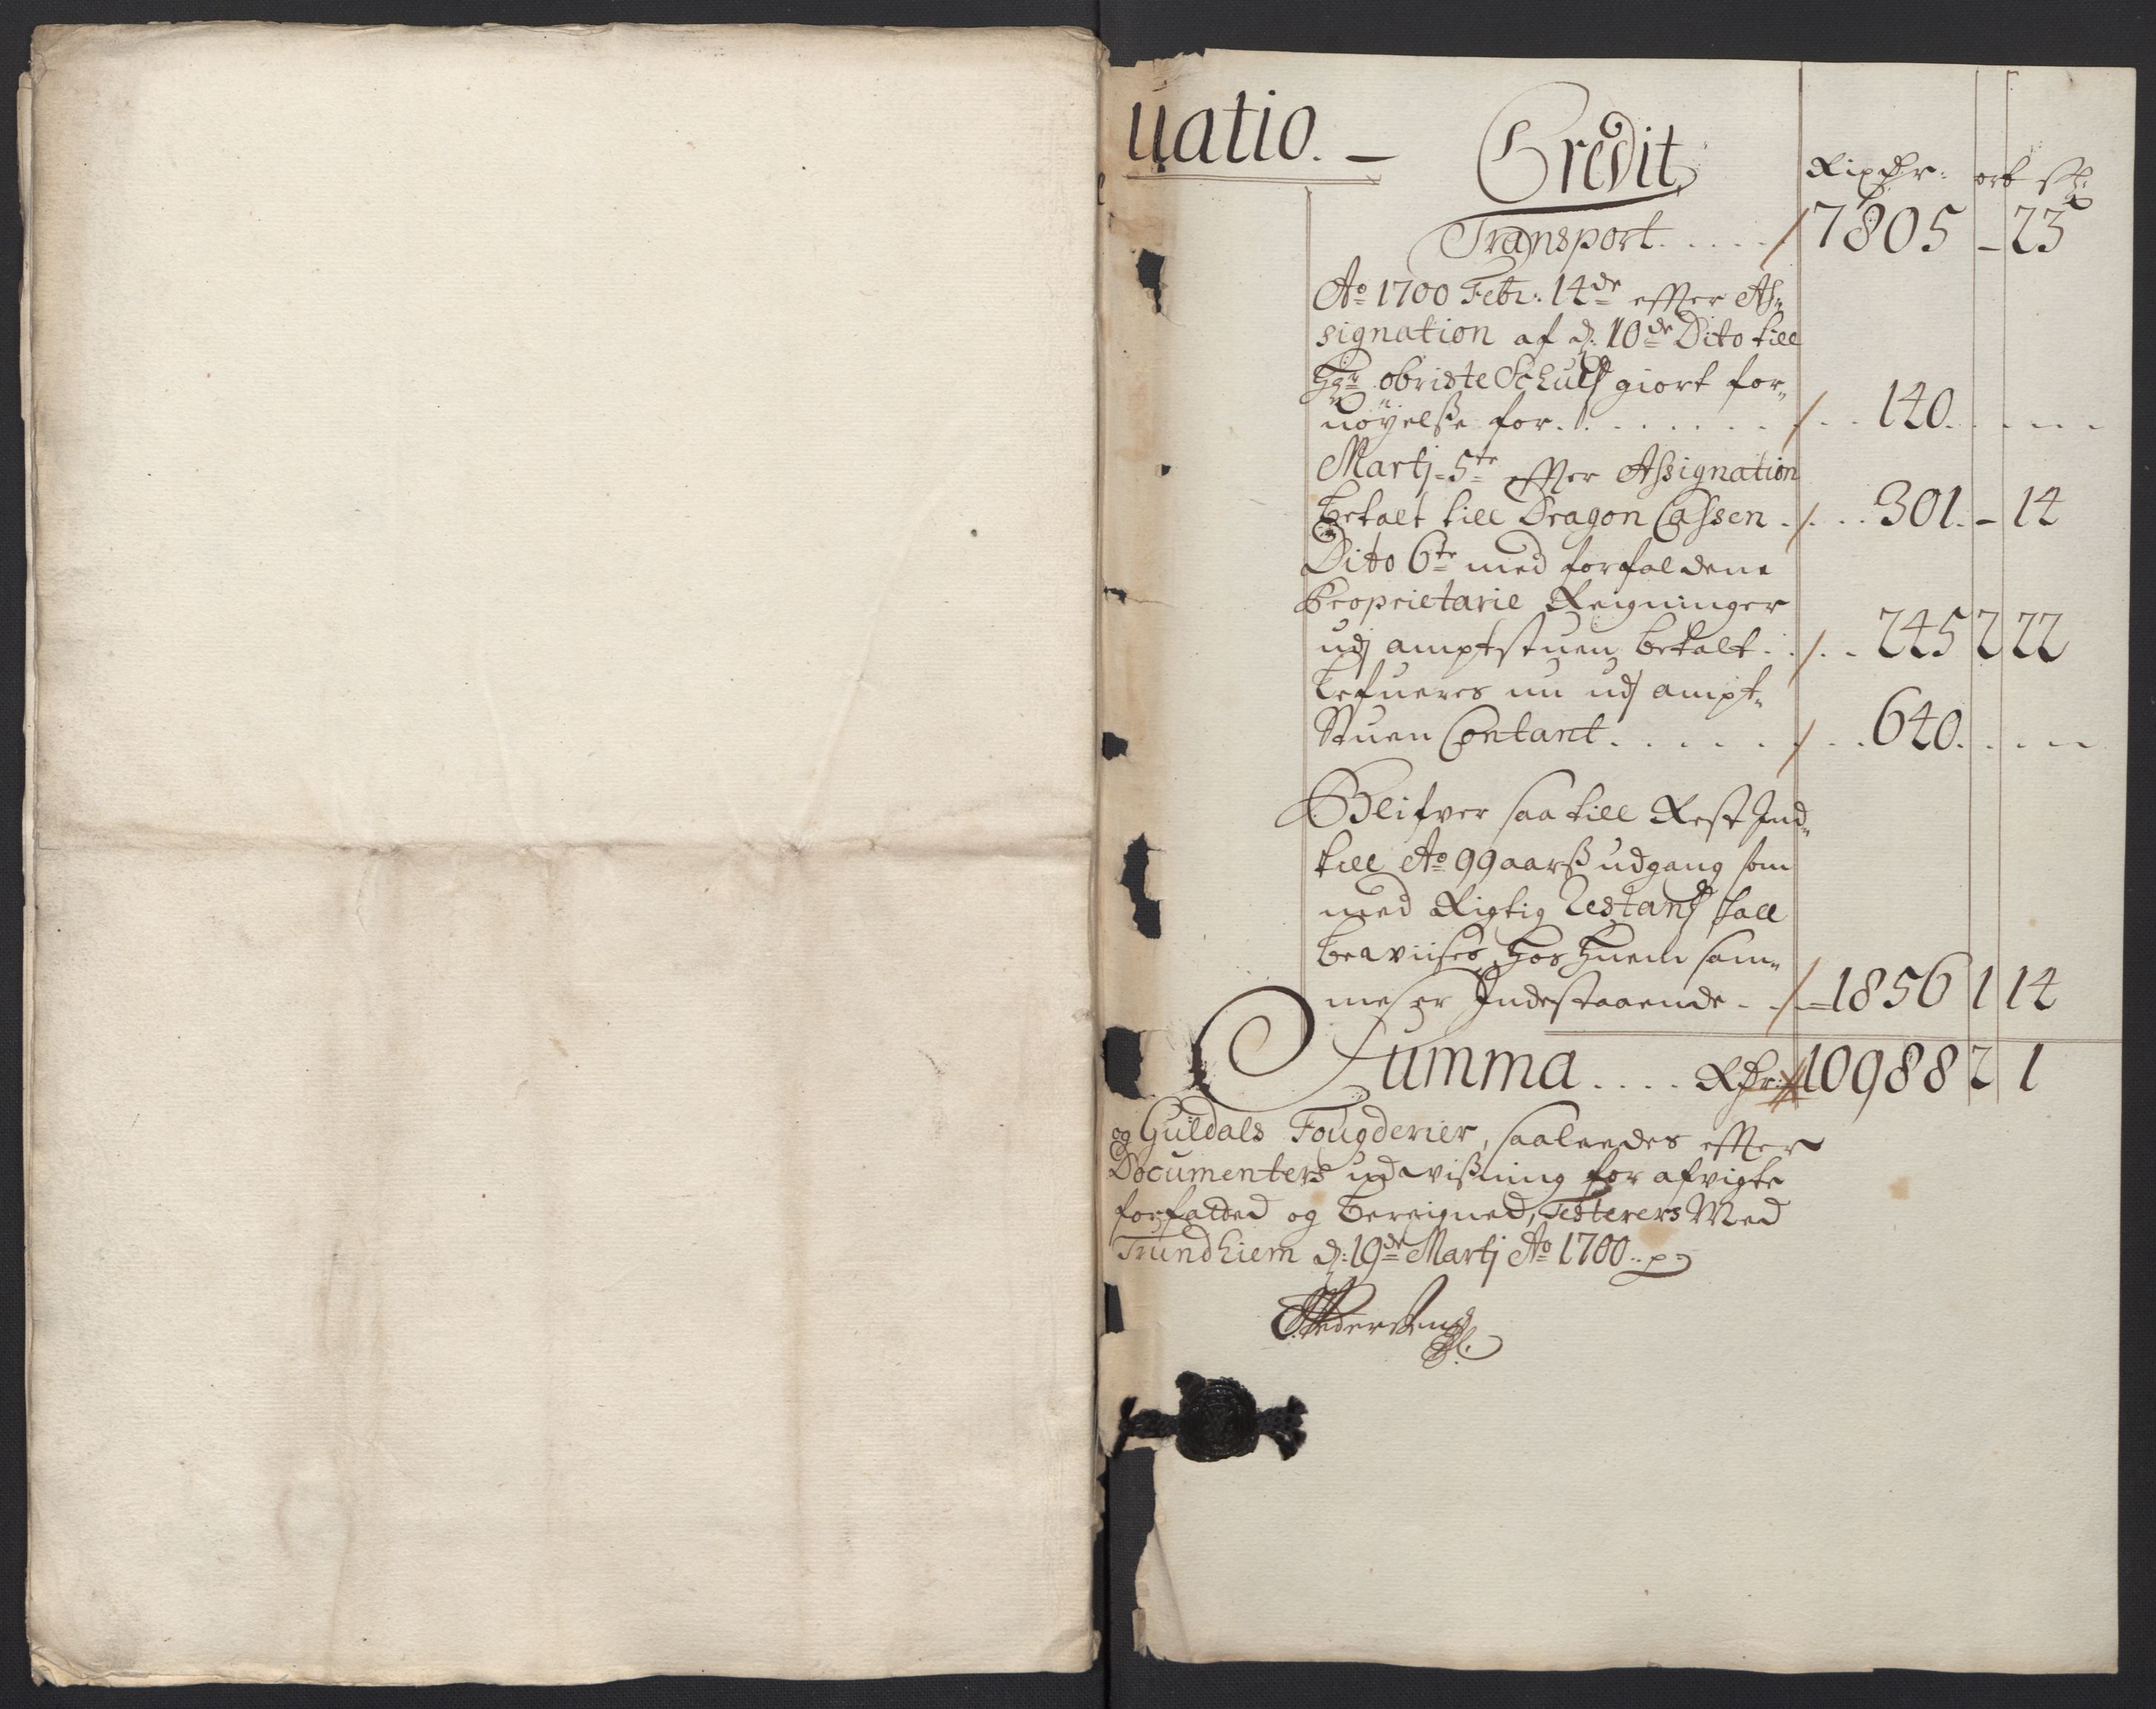 uatio. — Credit
Rixdr: ort ſk:
Transport. . . . . / 7805 – 23
Ao 1700 Febr: 14de effter As„
signation af d: 10de Dito till
Hr: obriste Schultz giort for„
nöyelße for. . . . . . . . / . . 140. . . . .
Martj 5te effter Aßignation
betalt till Dragon Caßsen . / . . . 301. – 14
Dito 6te med forfaldene
Proprietarie Reigninger
udj amptstuen betalt . . / . . 245 2 22
Lefueres nu udj ampt„
Stuen Contant . . . . . . / . . 640. . . . .
Blifver saa till Rest Ind„
till Ao 99 aarß udgang som
med Rigtig Restantz skall
beviises, hos huem sam„
me er Indestaaende . . / 1856 1 14
Summa . . . . Rdr: 10988 2 1
og Guldals Fougderier, saaledes effter
Documenters udvißning for afvigte
forfatted og bereigned, Testerers Med
Trundhiem d: 19de Martj Ao 1700 ..